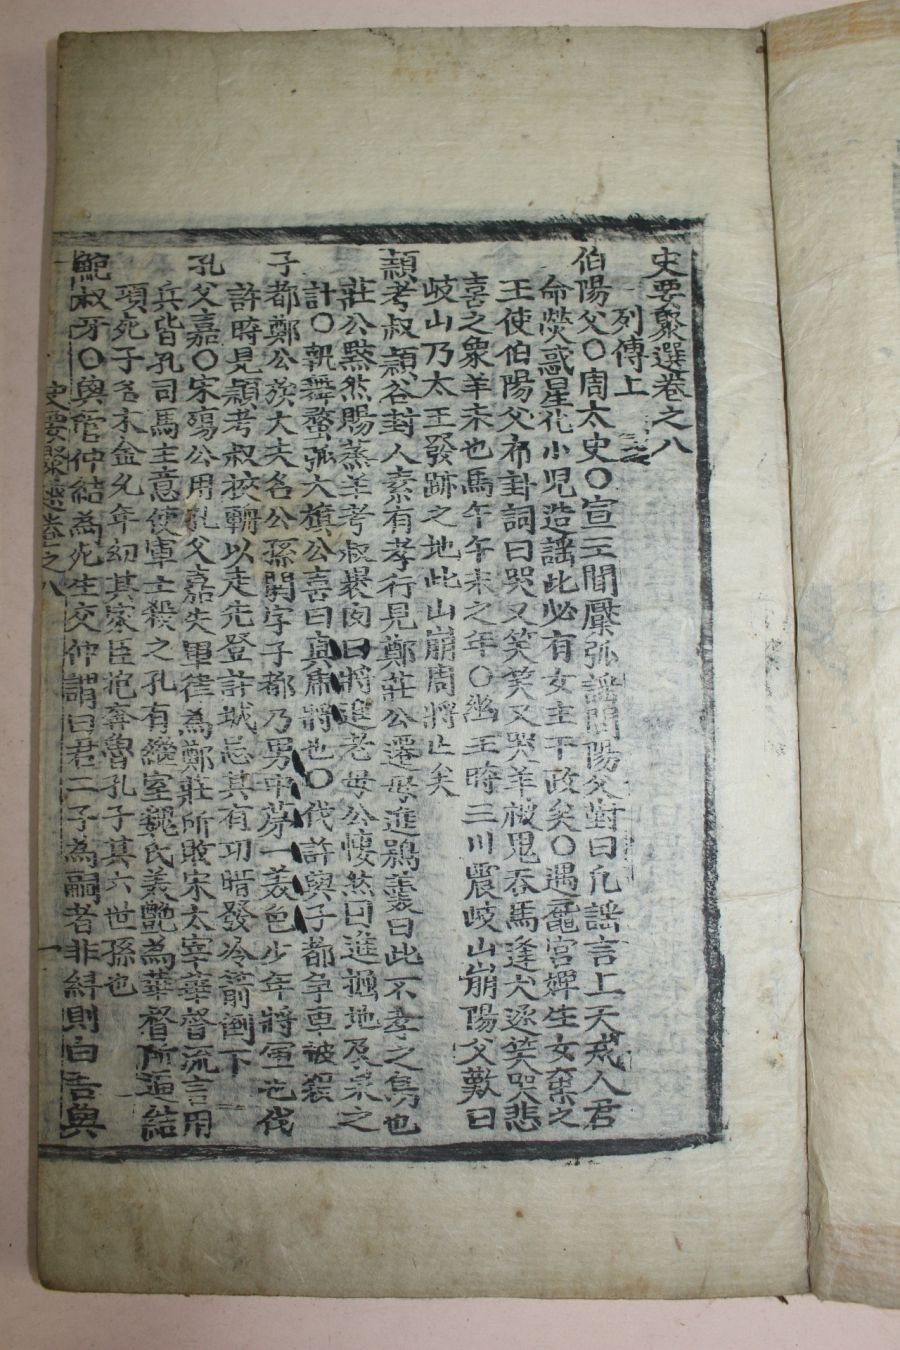 史要聚選卷之八
列傳上
伯陽父〇周太史〇宣王聞檿弧謠問陽父對曰凡謠言上天戒人君
命熒惑星化小児造謠此必有女主干政矣〇遇黿宮婢生女棄之
王使伯陽父布卦詞曰哭又笑笑又哭羊被鬼吞馬逢犬逐笑哭悲
喜之象羊未也馬午午未之年〇幽王時三川震岐山崩陽父歎曰
岐山乃太王發跡之地此山崩周將亡矣
頴考叔頴谷封人素有孝行見鄭莊公遷母進鴞羹曰此不孝之鳥也
莊公黙然賜蒸羊考叔褁肉曰將進老母公悽然曰進掘地及泉之
計〇能舞蝥弧大旗公喜曰眞虎將也〇代許與子都争車被殺
子都鄭公族大夫名公孫閼字子都乃男中第一羙色少年將軍也伐
許時見頴考叔挾輈以走先登許城忌其有功暗發冷箭倒下
孔父嘉〇宋殤公用孔父嘉失軍律為鄭莊所敗宋太宰華督流言用
兵皆孔司馬主意使軍士殺之孔有繼室魏氏羙艶為華督所逼結
項死子名木金父年幼其家臣抱奔魯孔子其六世孫也
鮑叔牙〇與管仲結為死生交仲謂曰君二子為嗣者非糾則白吾與
史要聚選卷之八
一